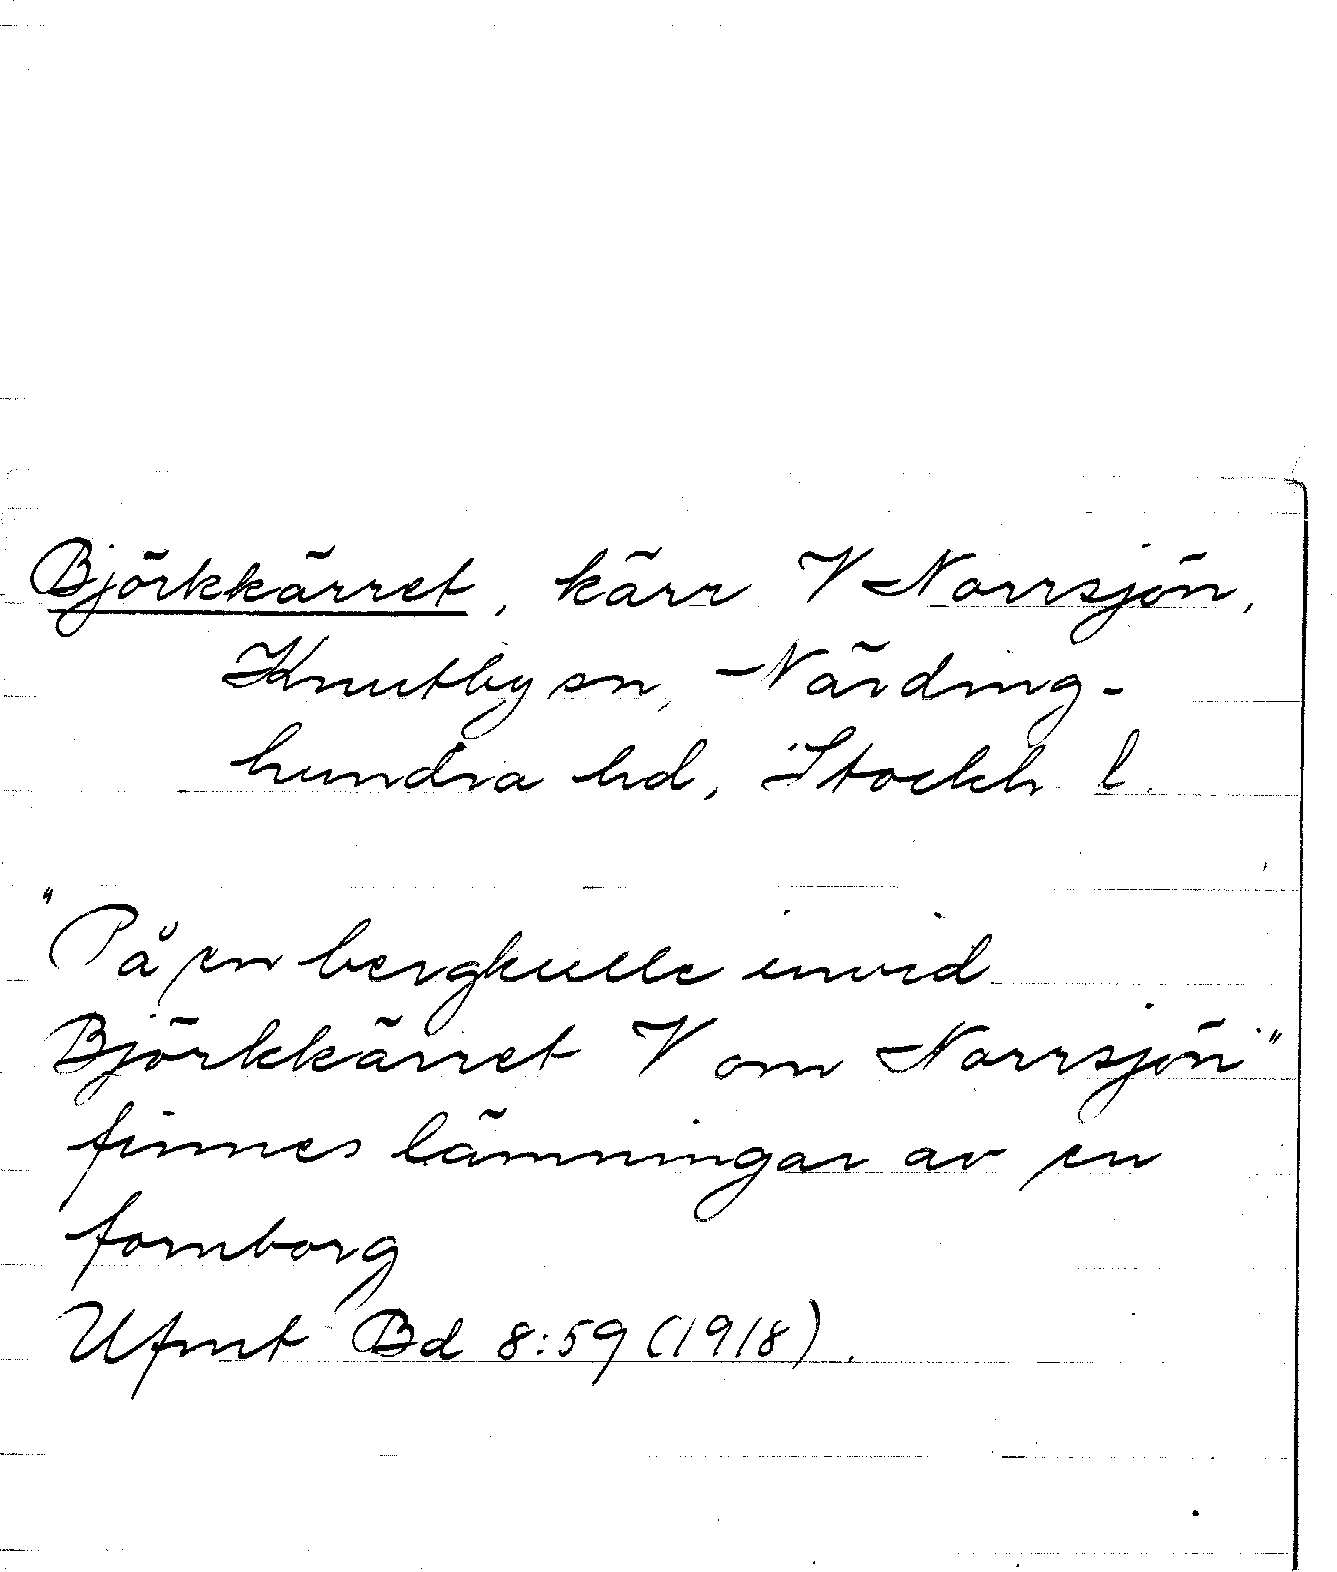 Björkkärret, kärr V Norrsjön,
Knutby sn, Närding-
hundra hd, Stockh. l.
"På en bergkulle invid
Björkkärret V om Norrsjön"
finnes lämningar av en
fornborg
Ufmt Bd 8:59 (1918).